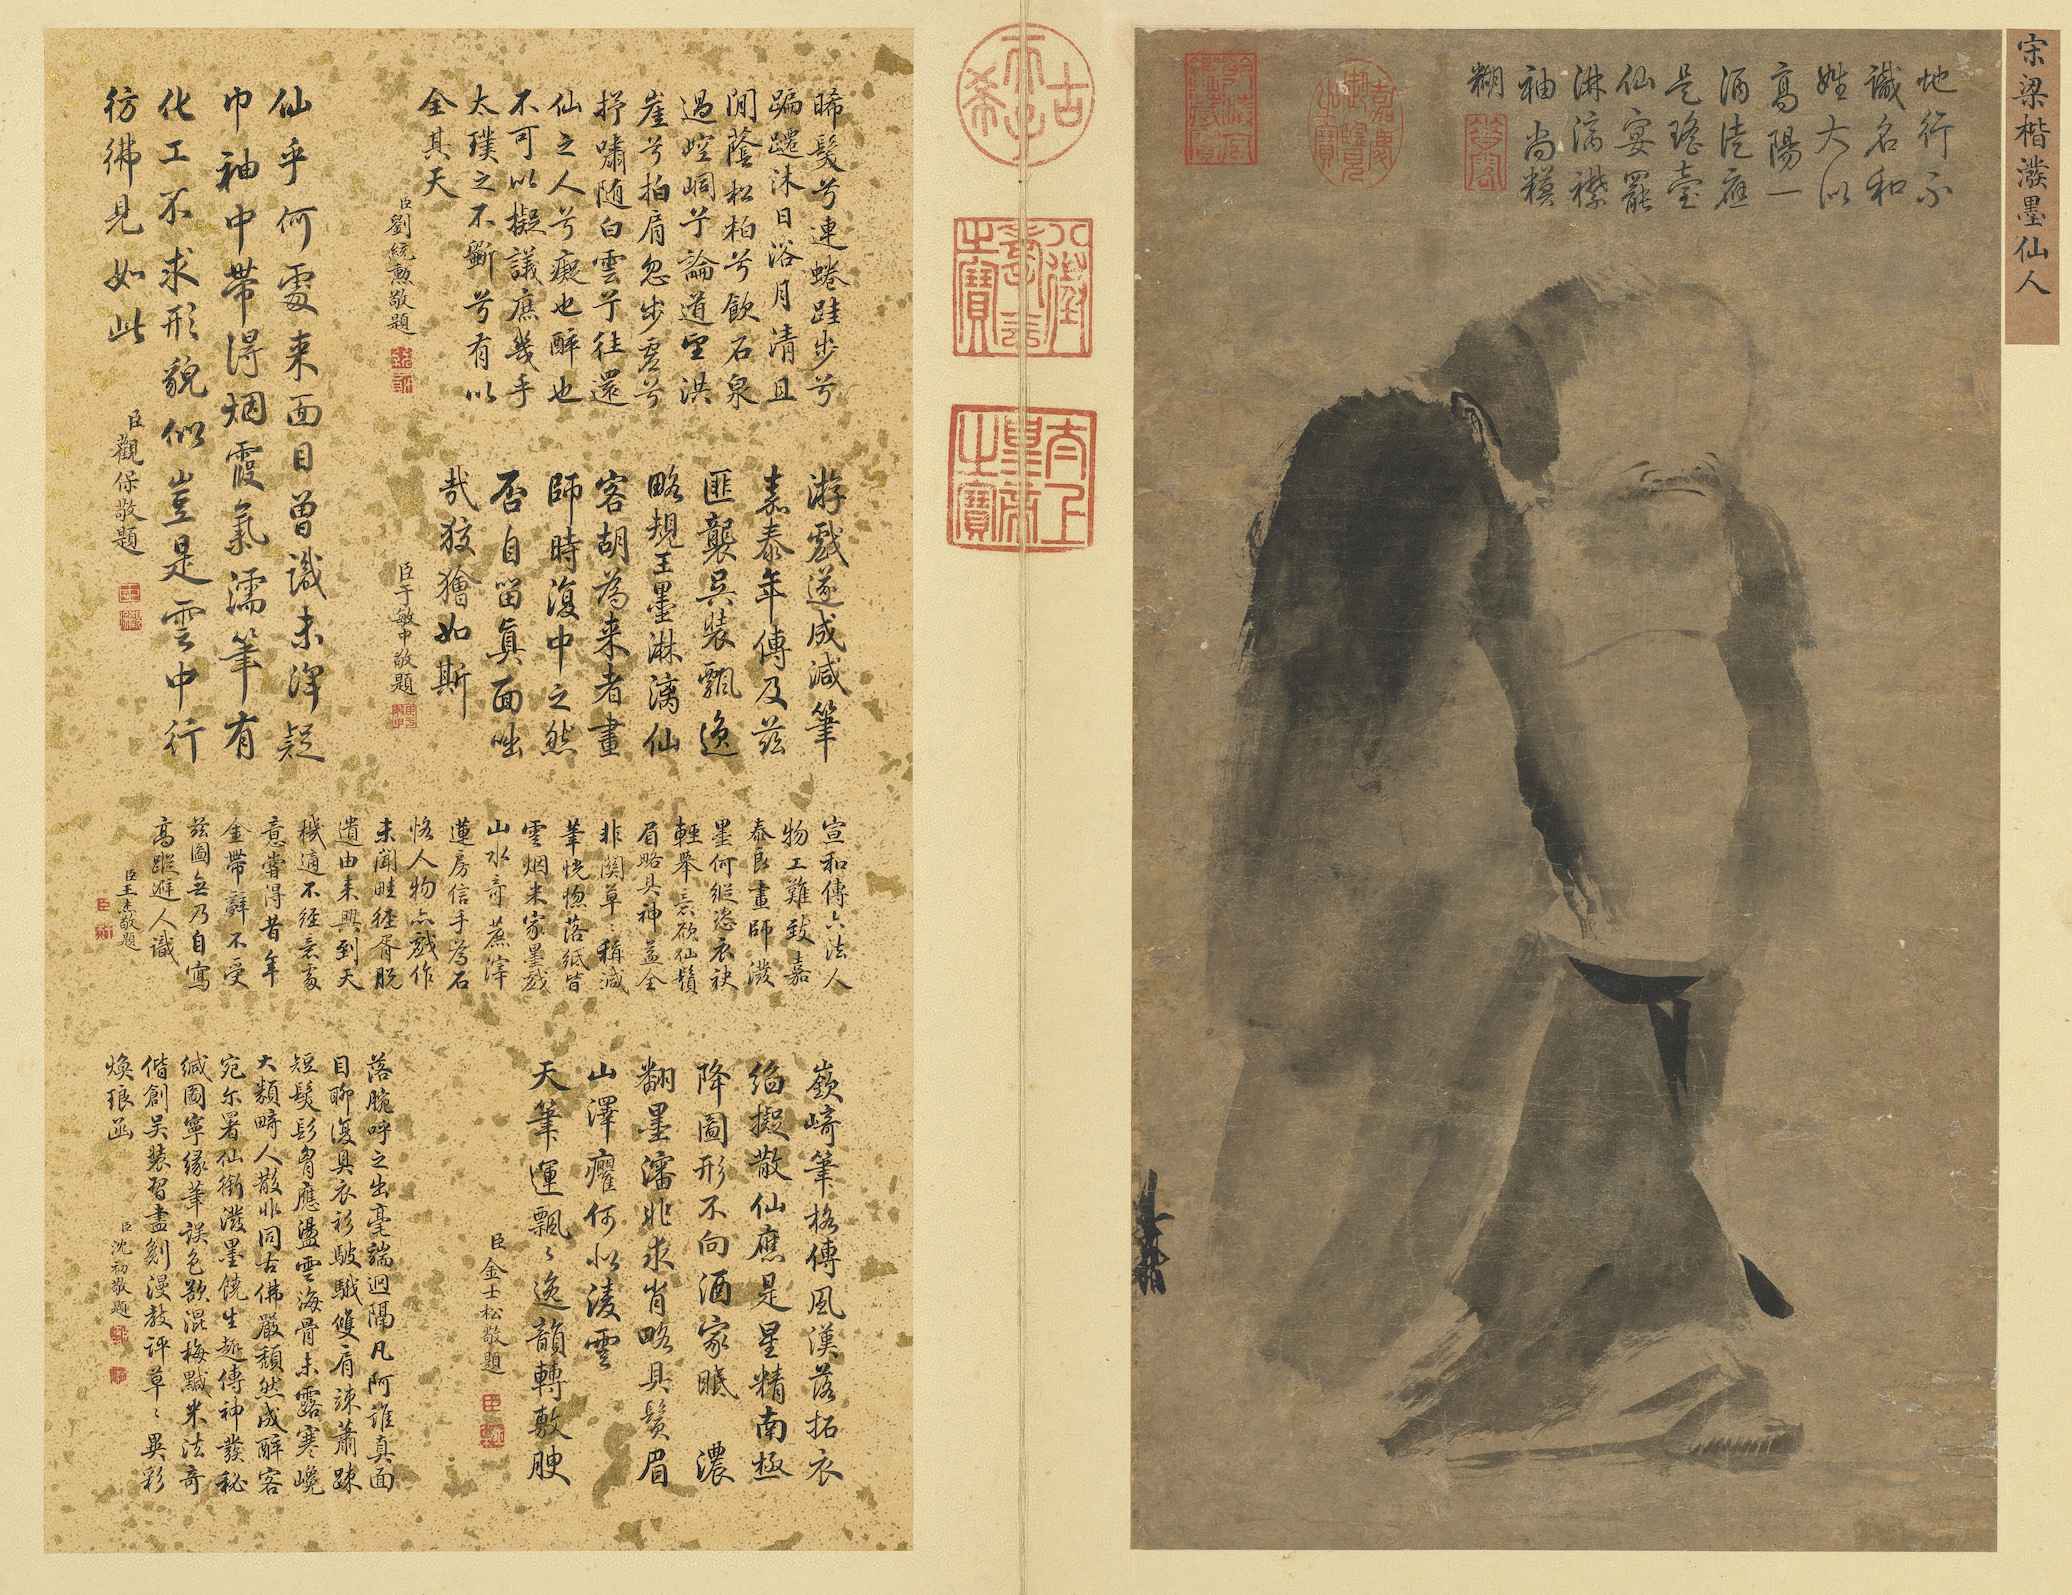 宋梁楷潑墨仙人
地行不
識名和
姓大似
高陽一
酒徒應
是瑤臺
仙宴罷
淋漓襟
袖尚模
糊
嘉慶御覽之寶
古希天子
八徵耄念之寶
太上皇帝之寶
晞髮兮連蜷跬步兮
蹁躚沐日浴月清且
閒蔭松柏兮飲石泉
過崆峒兮論道望洪
崖兮拍肩忽步虛兮
抒嘯随白雲兮往還
仙之人兮癡也醉也
不可以擬議庶幾乎
太璞之不斵兮有以
全其天
臣劉統勳敬題
仙乎何處来面目曾識未渾疑
巾袖中帶得烟霞氣濡筆有
化工不求形貌似豈是雲中行
彷彿見如此
臣觀保敬題
游戲遂成減筆
嘉泰年傳及兹
匪襲吳裝飄逸
略規王墨淋漓仙
客胡為来者畫
師時復中之然
否自留真面咄
哉狡獪如斯
臣于敏中敬題
宣和傳六法人
物工難致嘉
泰良畫師潑
墨何縱恣衣袂
輕舉意欲仙鬚
眉略具神益全
非關草草稱減
筆恍惚落紙皆
雲烟米家墨戲
山水奇蔗滓
蓮房信手為石
恪人物亦戲作
未聞畦徑胥脫
遺由来興到天
機適不經意處
意嘗得昔年
金帶辭不受
兹圖無乃自寫
高蹤避人識
臣王杰敬題
嶔崎筆格傳風漢落拓衣
絇擬散仙應是星精南極
降圖形不向酒家眠 濃
翻墨瀋非求肖略具鬢眉
山澤癯何似淩雲
天筆運飄飄逸韻轉敷腴
臣金士松敬題
落腕呼之出毫端迥隔凡阿誰真面
目聊復具衣衫駊騀雙肩竦蕭疎
短髮髟胷應盪雲海骨未露寒巉
大類畸人散非同古佛嚴頹然成醉客
宛尔署仙銜潑墨饒生趣傳神發秘
緘圖寧緣筆誤色欲混梅黬米法奇
偕創吳裝習盡剗漫教評草草異彩
煥琅函
臣沈初敬題